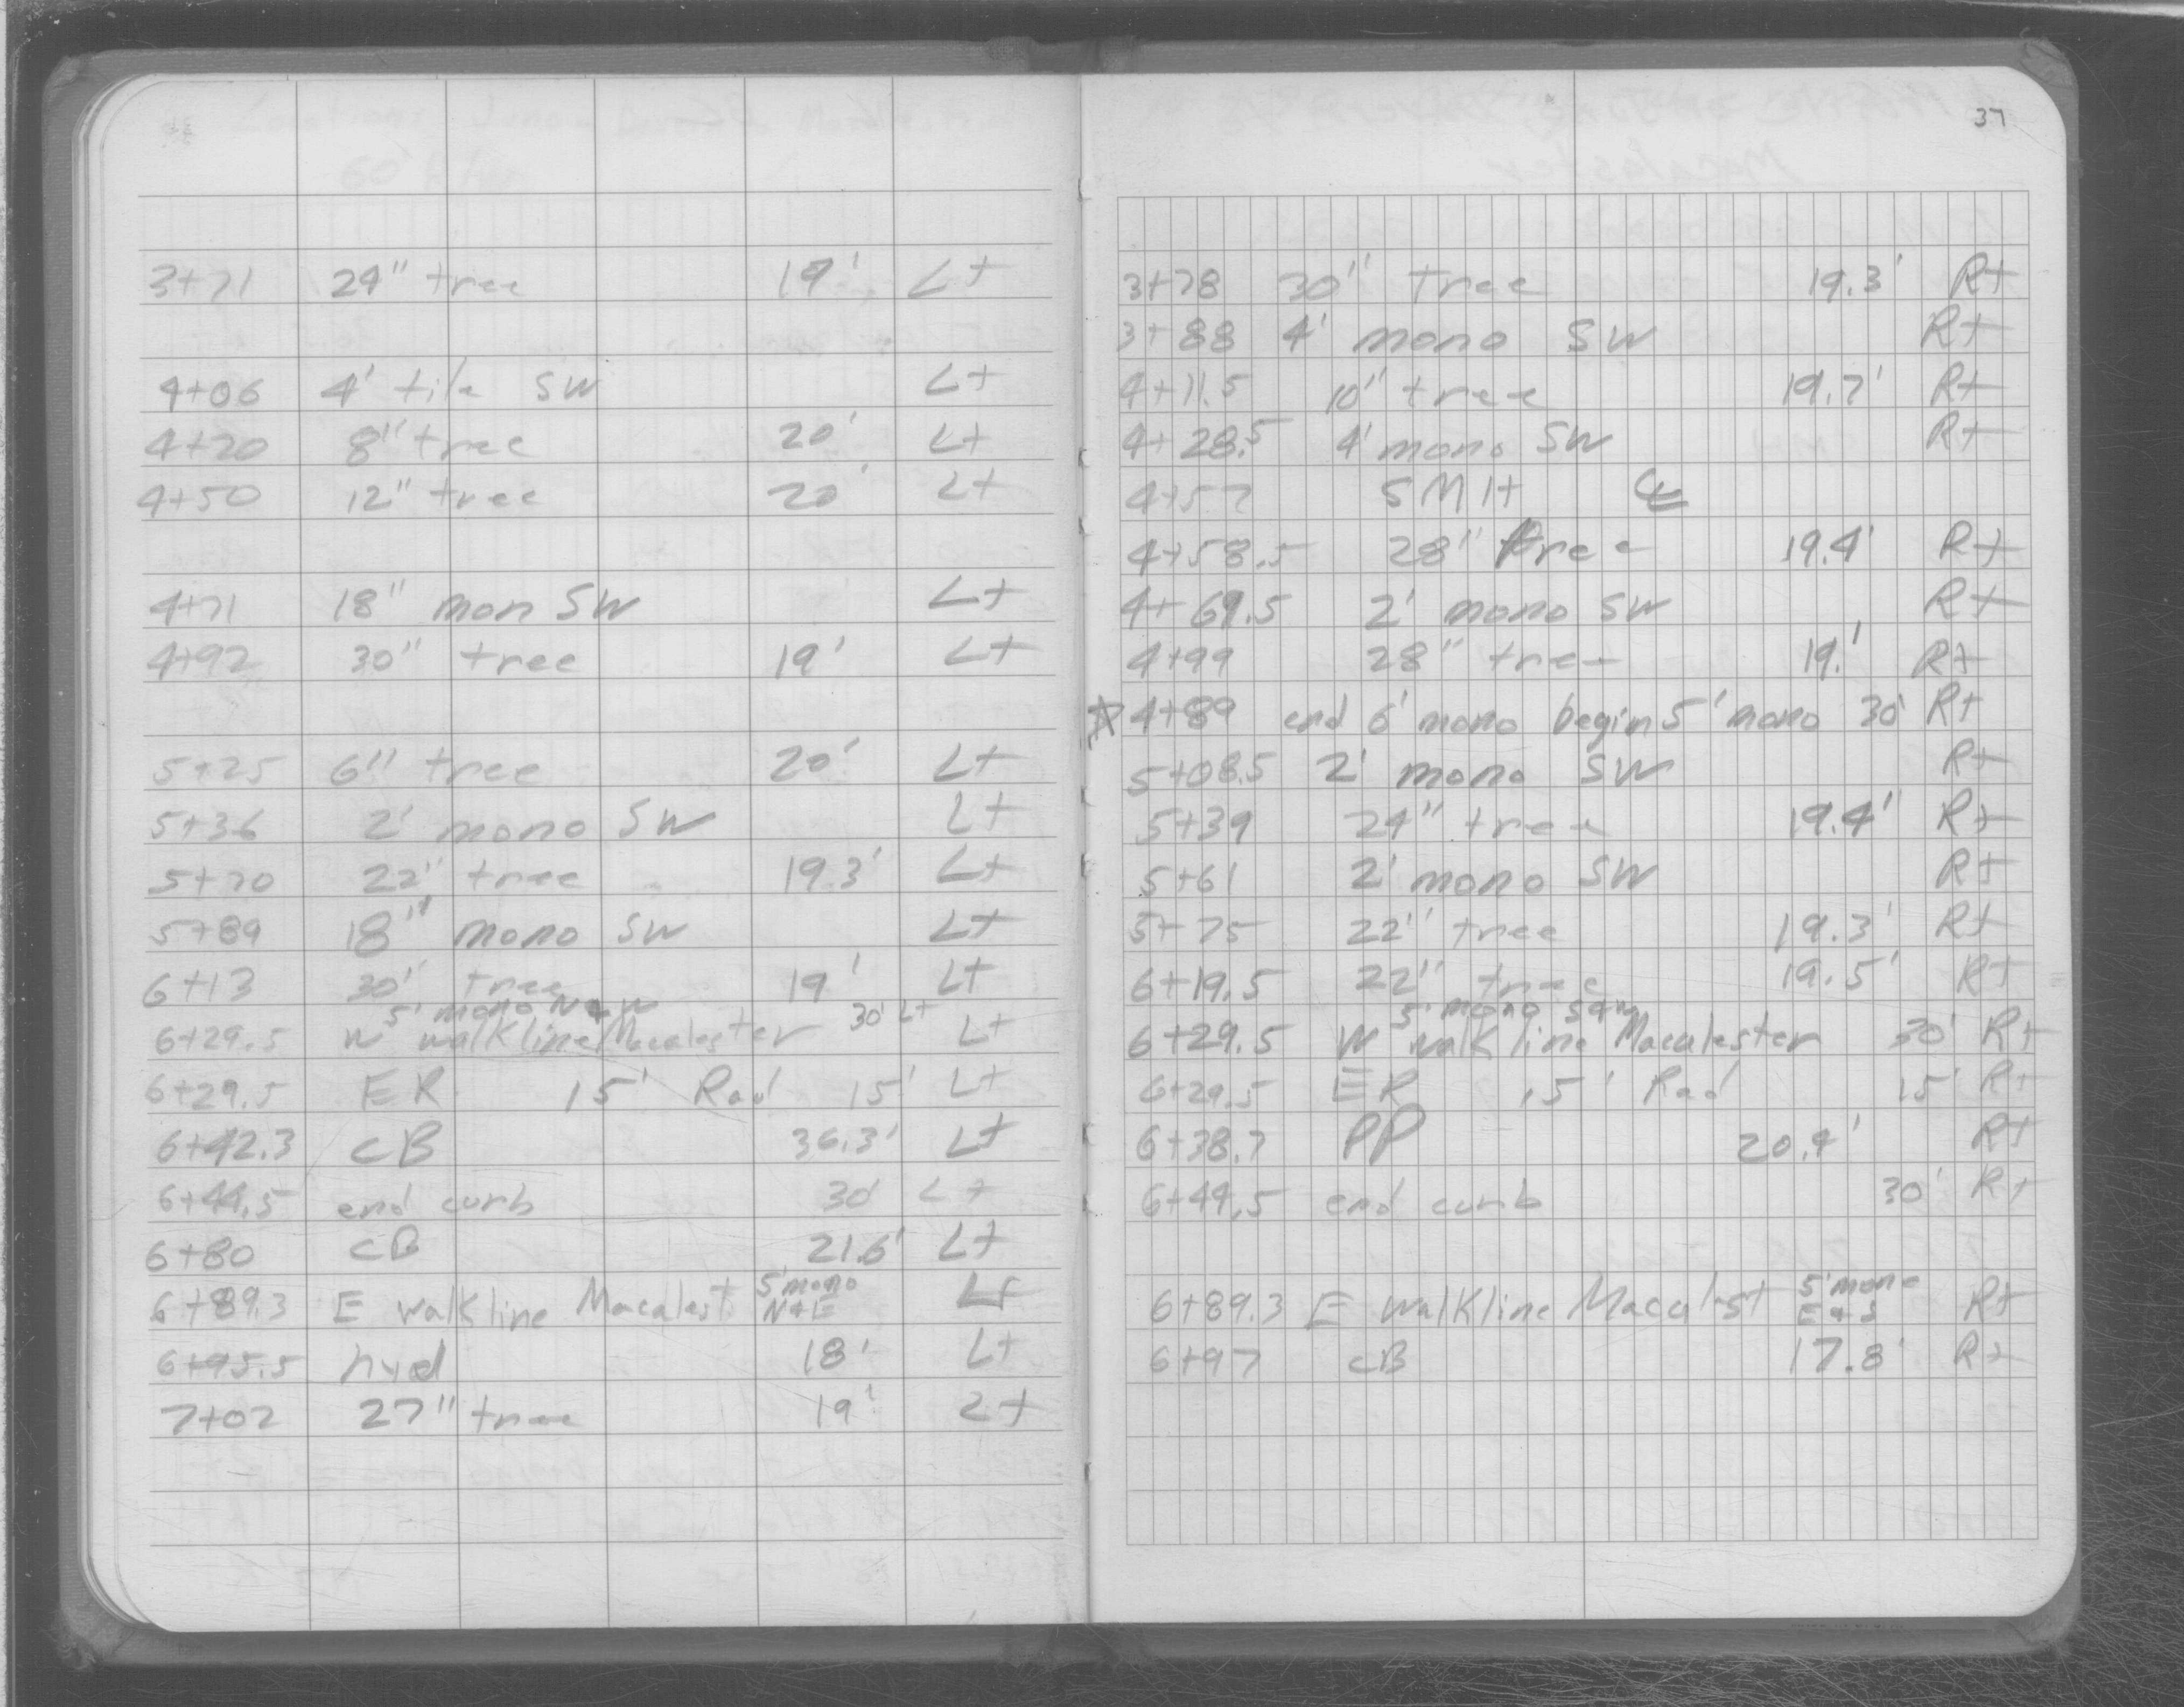 3+71 24" tree 19' Lt
4+06 4' tile SW Lt
4+20 8" tree 20' Lt
4+50 12" tree 20' Lt
4+71 18" mon SW Lt
4+92 30" tree 19' Lt
5+25 6" tree 20' Lt
5+36 2' mono SW Lt
5+70 22" tree 19.3' Lt
5+89 18" mono SW Lt
6+13 30" tree 19' Lt
5' mono N&W 30' Lt
6+29.5 W walkline Macalester Lt
6+29.5 ER 15' Rad 15' Lt
6+42.3 CB 36.3' Lt
6+44.5 end curb 30' Lt
6+80 CB 21.6' Lt
6+89.3 E walkline Macalest 5' mono N&E Lt
6+95.5 hyd 18' Lt
7+02 27" tree 19' Lt
37
3+78 30" tree 19.3' Rt
3+88 4' mono SW Rt
4+11.5 10" tree 19.7' Rt
4+28.5 4' mono SW Rt
4+57 SMH
4+58.5 28" tree 19.4' Rt
4+69.5 2' mono SW Rt
4+99 28" tree 19.' Rt
4+89 end 6' mono begin 5' mono 30' Rt
5+08.5 2' mono SW Rt
5+39 24" tree 19.4' Rt
5+61 2' mono SW Rt
5+75 22" tree 19.3' Rt
6+19.5 22" tree 19.5' Rt
5' mono S&W
6+29.5 W walk line Macalester 30' Rt
6+29.5 ER 15' Rad 15' Rt
6+38.7 PP 20.4' Rt
6+44.5 end curb 30' Rt
6+89.3 E walkline Macalest 5' mono E&S Rt
6+97 CB 17.8' Rt